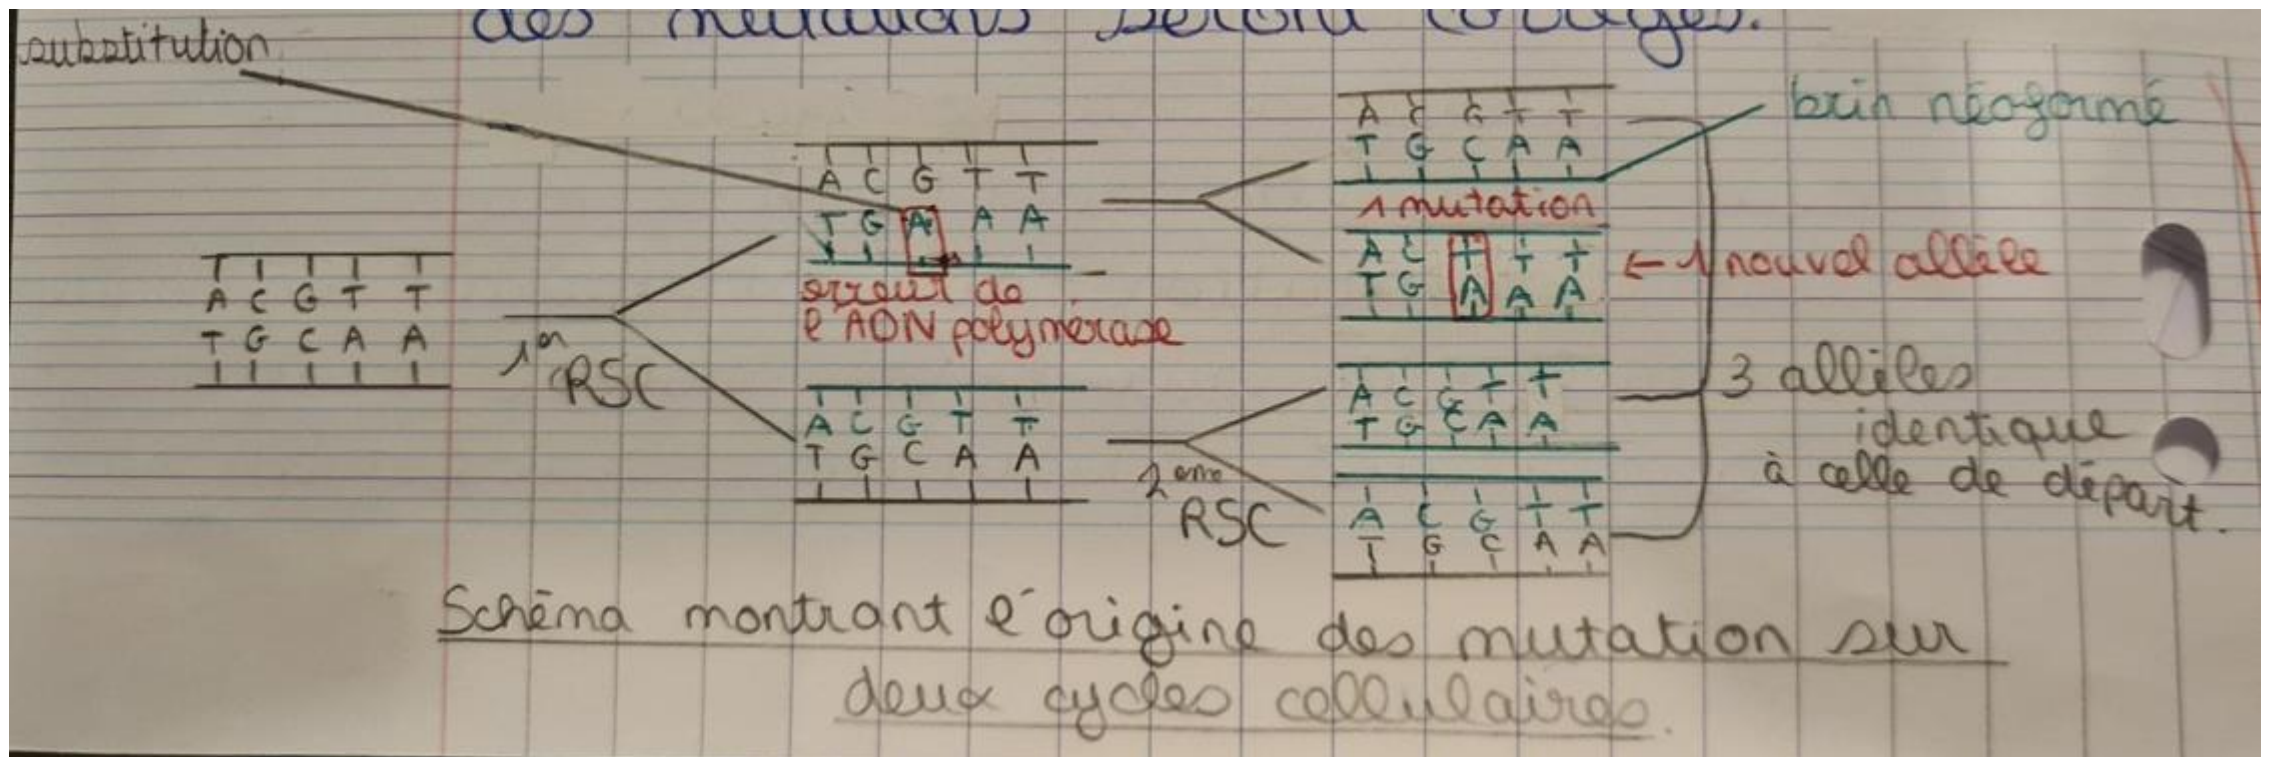 des mutations seront corrigés.
substitution
brin néoformé
A C G T T
T G C A A
1er RSC
A C G T T
T G A A A
erreur de
l'ADN polymérase
A C G T T
T G C A A
2eme
RSC
A C G T T
T G C A A
1 mutation
A C T T T
T G A A A
← 1 nouvel allèle
A C G T T
T G C A A
A C G T T
T G C A A
3 allèles
identique
à celle de départ.
Schéma montrant l'origine des mutation sur
deux cycles cellulaires.